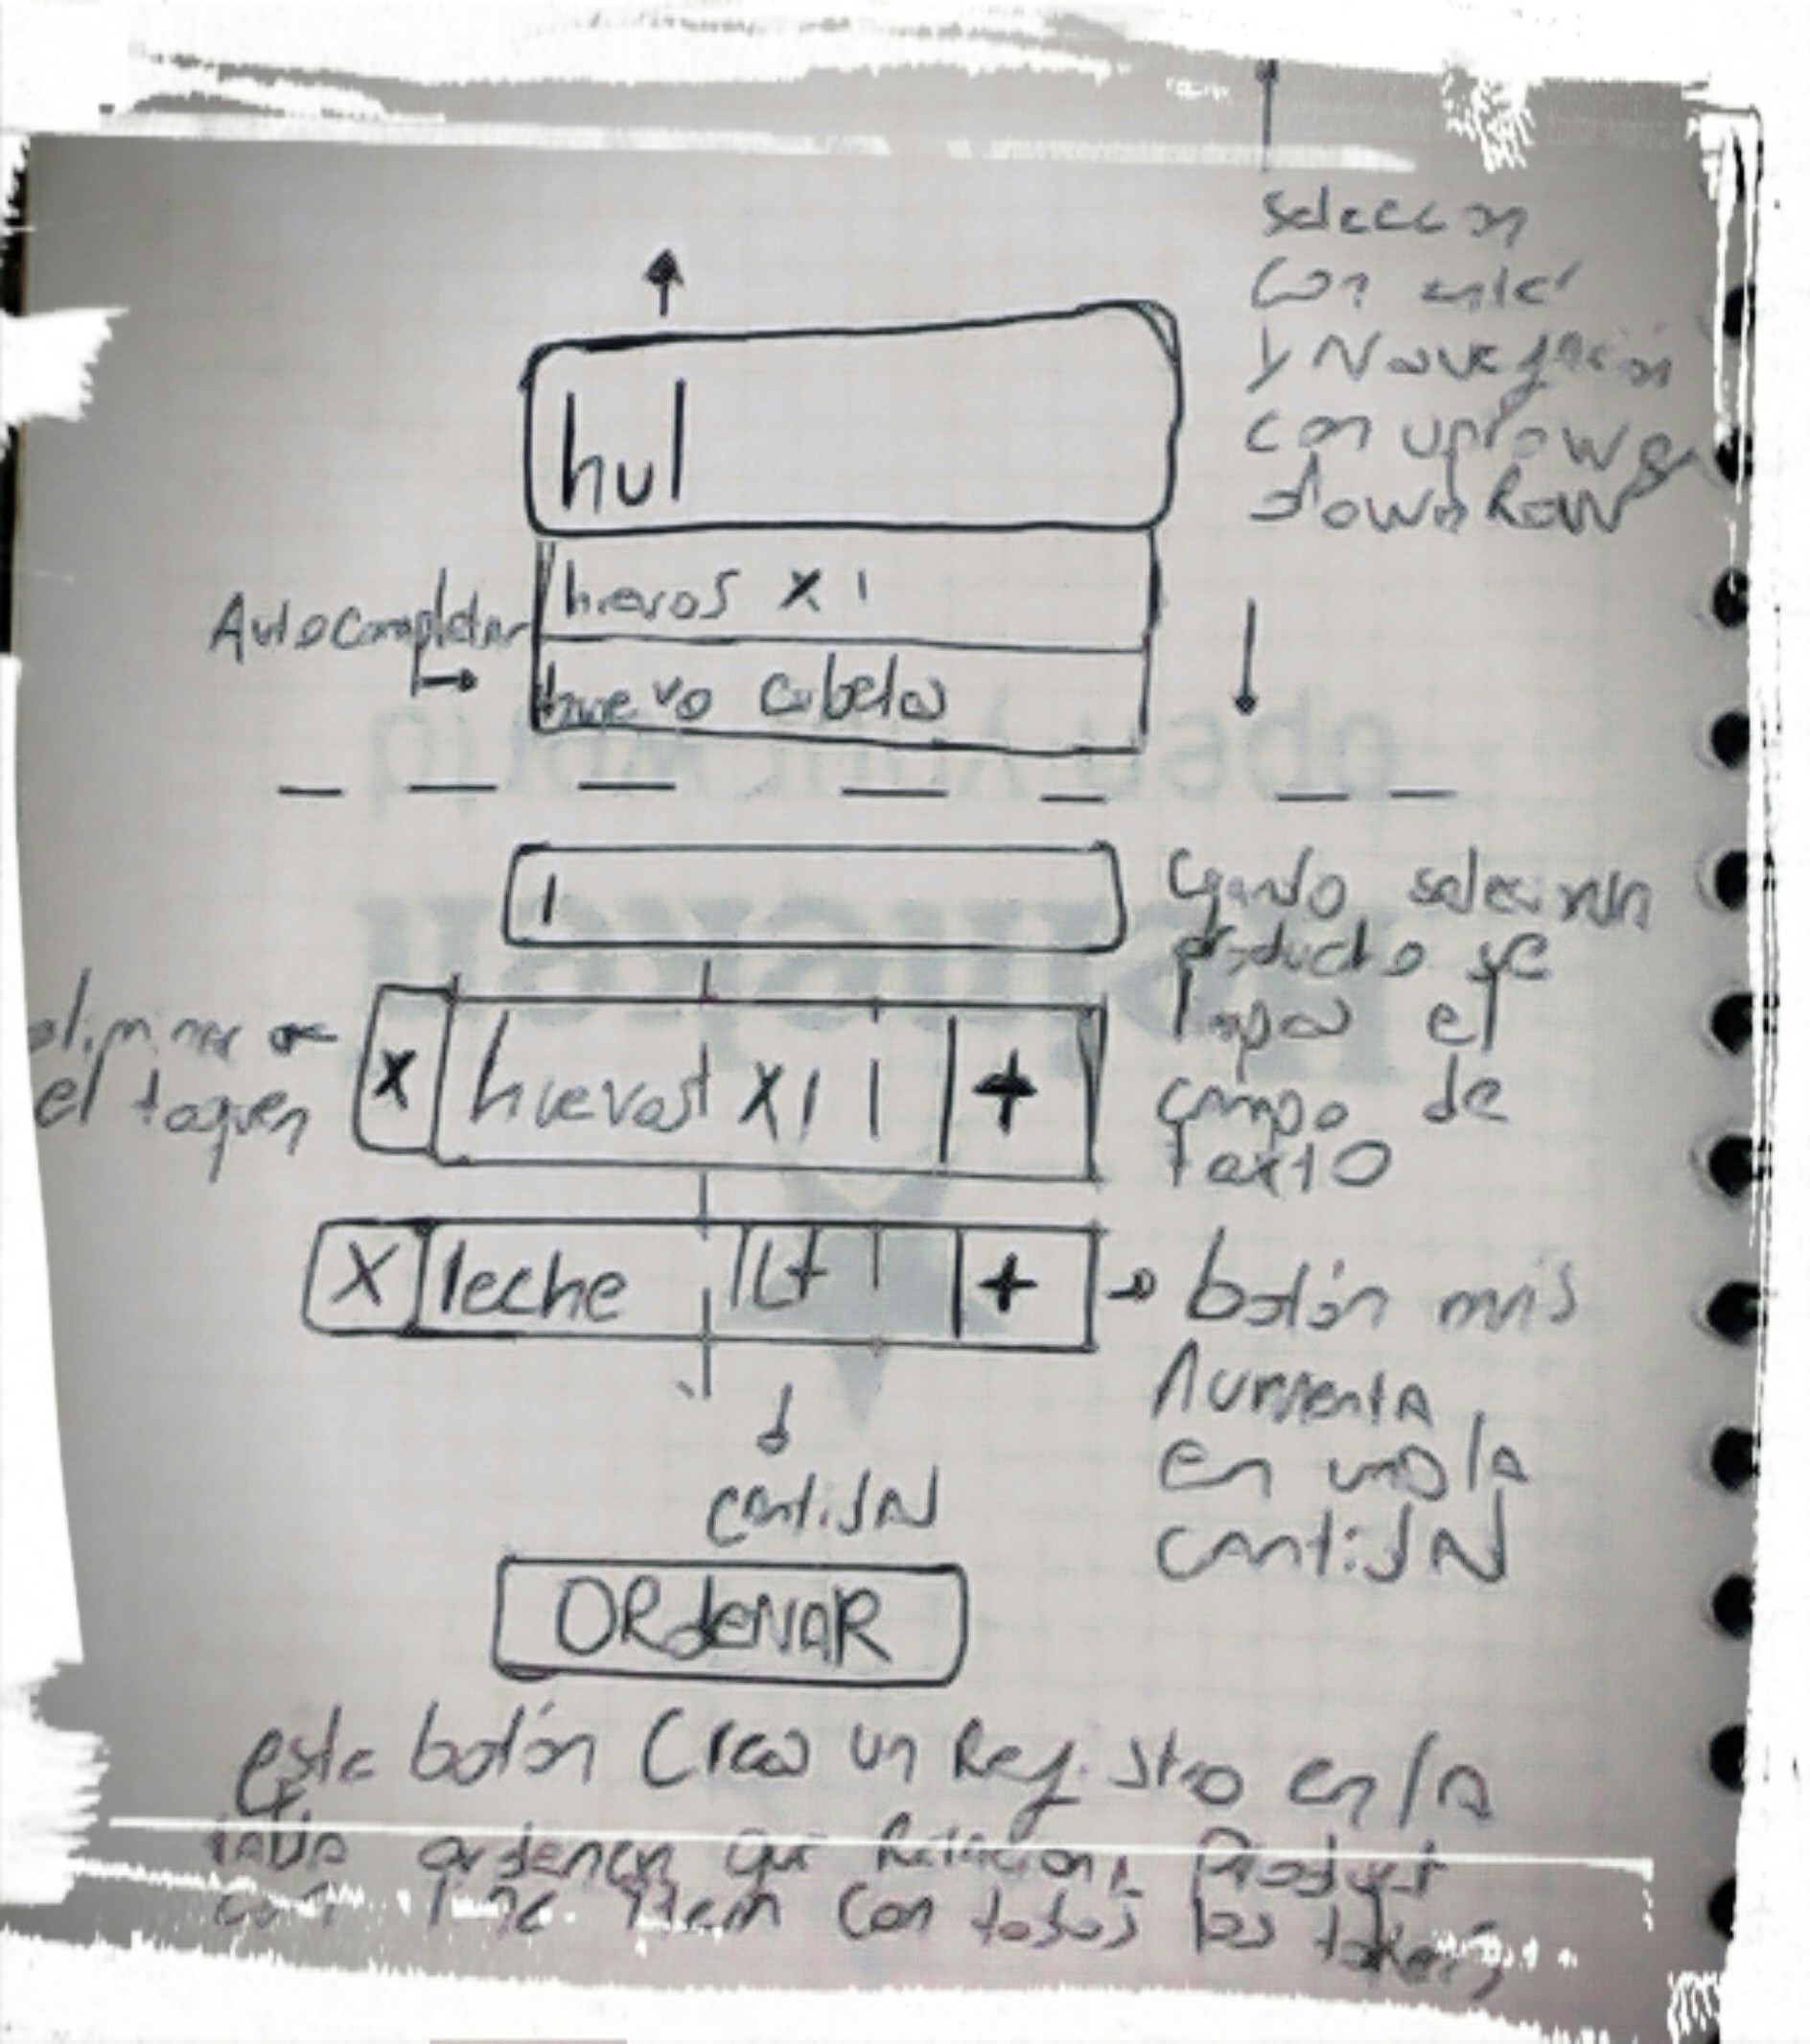 selección
con enter
y Navegación
con uprow y
down Row
hu|
huevos x 1
Autocompletar
huevo cubeta
Cuando selecionan
producto se
limpia el
campo de
texto
eliminar
el toquen
X huevos x1 1 +
X leche 1Lt 1 + botón más
Aumenta
en uno la
cantidad
cantidad
ORdeNAR
este botón Crea un Registro en la
tabla ordenen que Relaciona Product
Item con todos los tokens